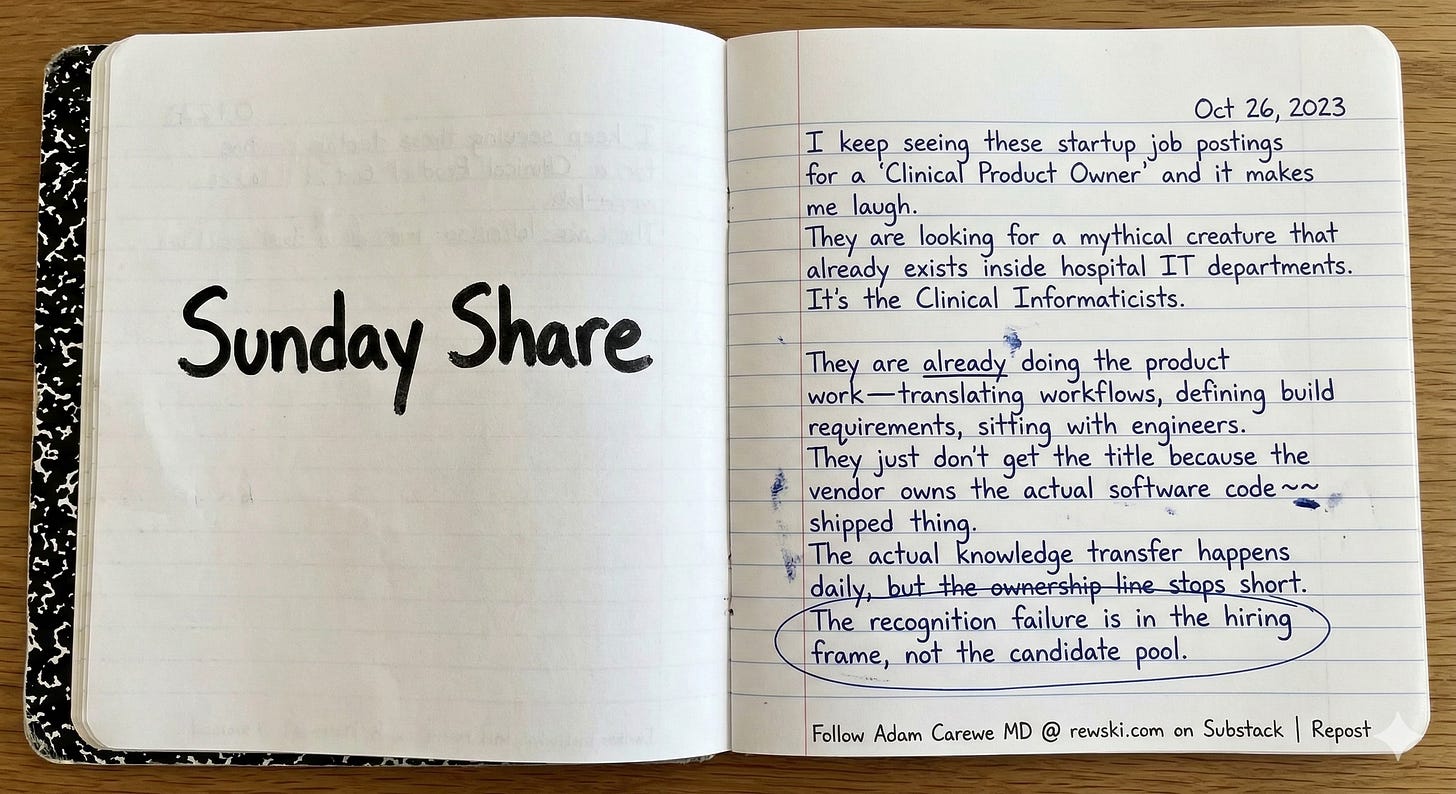 Sunday Share
Oct 26, 2023
I keep seeing these startup job postings
for a 'Clinical Product Owner' and it makes
me laugh.
They are looking for a mythical creature that
already exists inside hospital IT departments.
It's the Clinical Informaticists.
They are already doing the product
work—translating workflows, defining build
requirements, sitting with engineers.
They just don't get the title because the
vendor owns the actual software code~~
shipped thing.
The actual knowledge transfer happens
daily, but the ownership line stops short.
The recognition failure is in the hiring
frame, not the candidate pool.
Follow Adam Carewe MD @ rewski.com on Substack | Repost